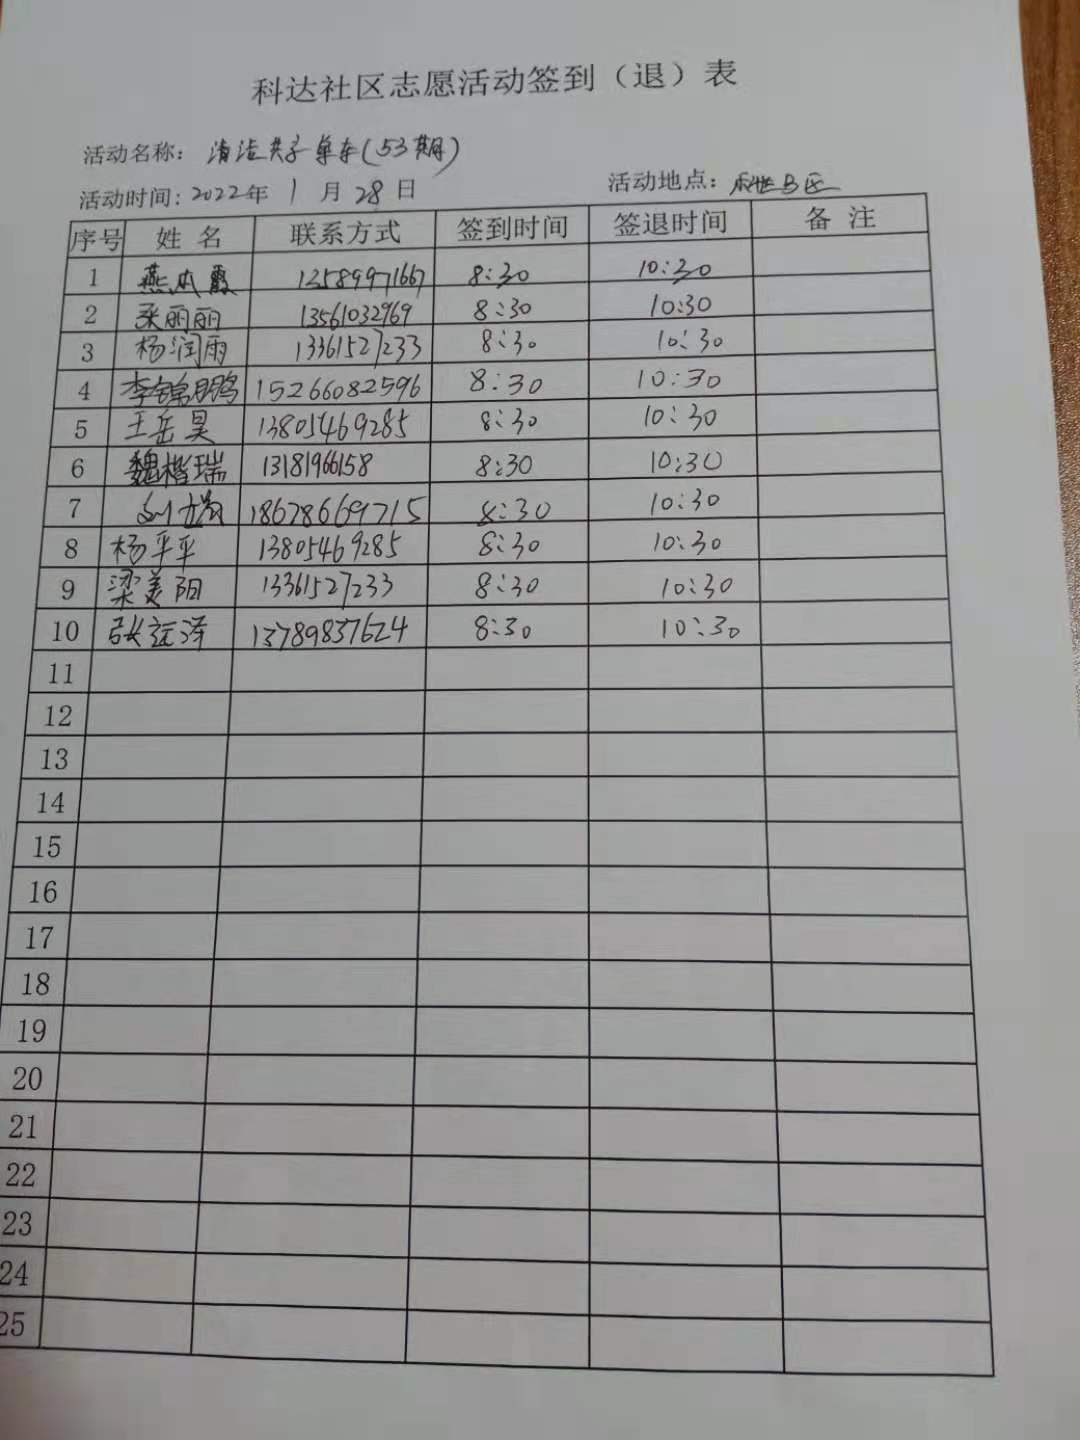 科达社区志愿活动签到（退）表
活动名称：清洁共享单车（53期）
活动时间：2022年 1 月 28 日 活动地点：B区
序号 姓 名 联系方式 签到时间 签退时间 备 注
1 燕 霞 13589971667 8:30 10:30
2 张丽丽 13561032969 8:30 10:30
3 杨润雨 13361527233 8:30 10:30
4 李锦鹏 15266082596 8:30 10:30
5 王岳昊 13805469285 8:30 10:30
6 魏楷瑞 13181966158 8:30 10:30
7 刘 18678669715 8:30 10:30
8 杨平平 13805469285 8:30 10:30
9 梁美阳 13361527233 8:30 10:30
10 张 泽 13789837624 8:30 10:30
11
12
13
14
15
16
17
18
19
20
21
22
23
24
25